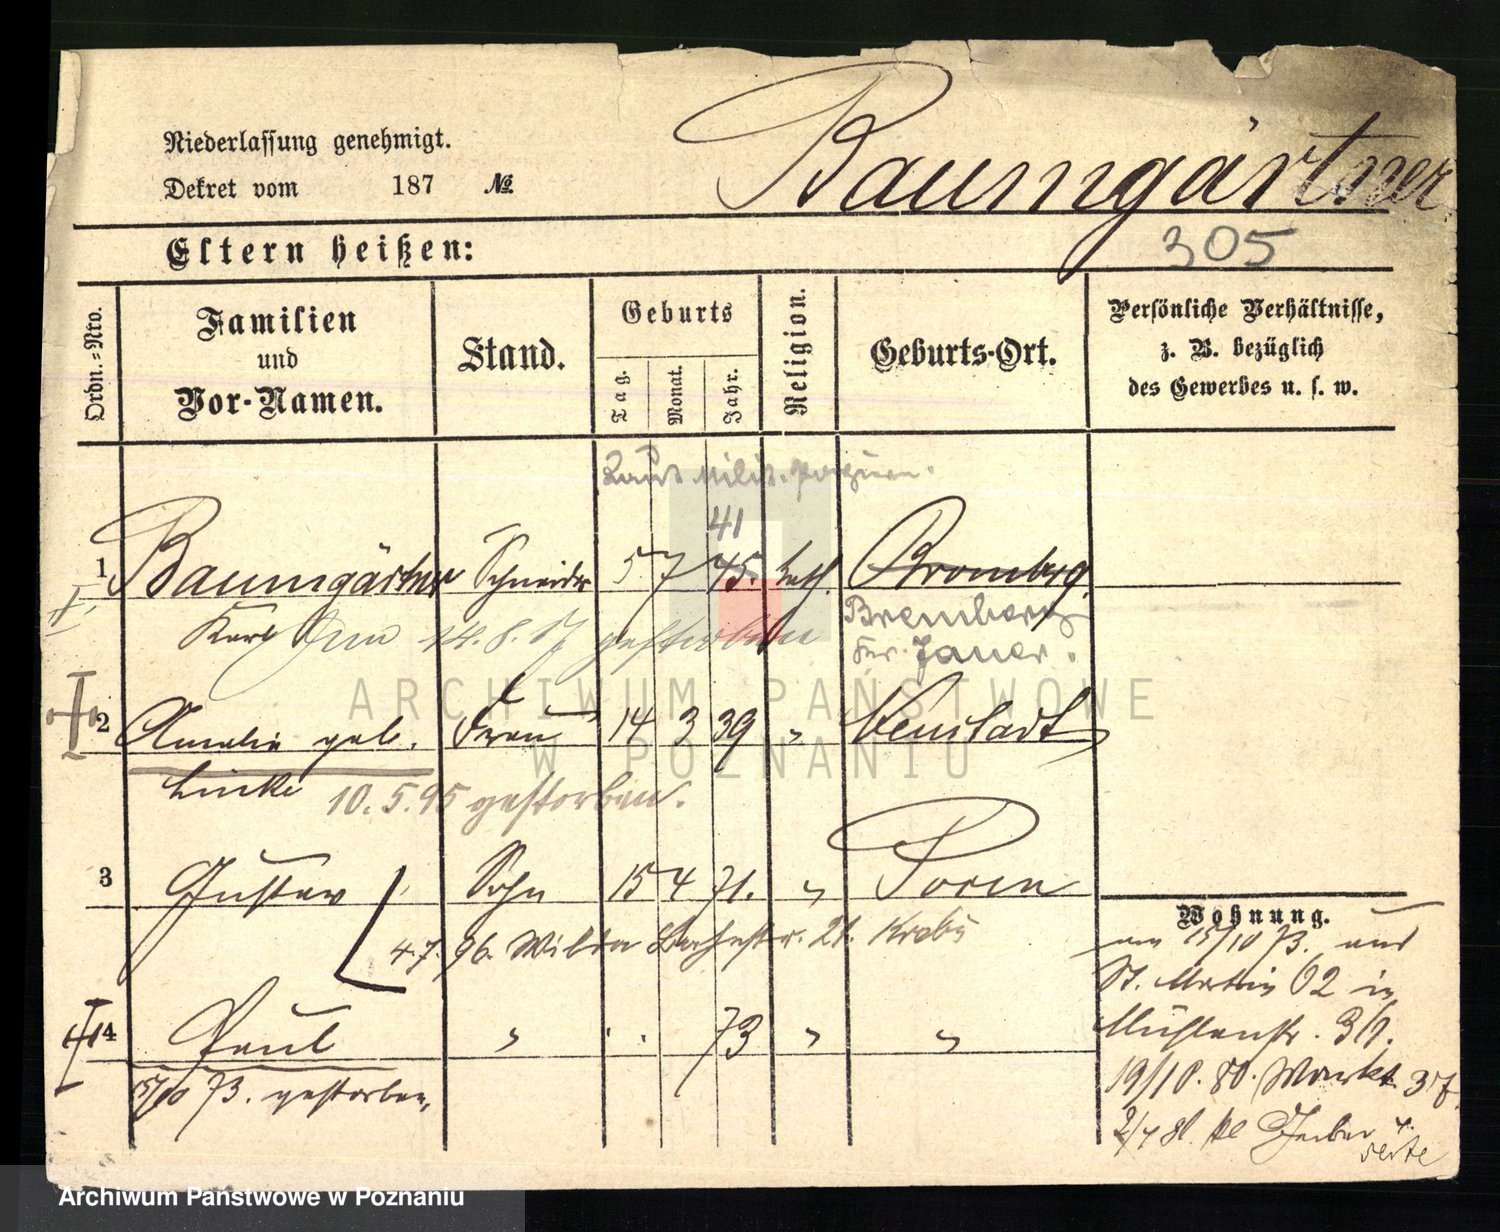 Niederlassung genehmigt.
Dekret vom 187 №
Baumgärtner
305
Eltern heißen:
Ordn.-Nro.
Familien
und
Vor-Namen.
Stand.
Geburts
Tag.
Monat.
Jahr.
Religion.
Geburts-Ort.
Persönliche Verhältnisse,
z. B. bezüglich
des Gewerbes u. s. w.
Laut milit.
41
1 Baumgärtner Schneider 5. 7 45. kath. Bromberg.
Karl 14.8. gestorben Bremberg
Kr. Jauer.
2 Amalie geb. Frau 14 3 39 " Neustadt
Linke 10.5.95 gestorben.
3 Gustav Sohn 15 4 71. " Posen
4.7. 96. Wilda 21. Krebs
4 Paul " 73 " "
15/10 73. gestorben.
Wohnung.
am 15/10 73. aus
St. Martin 62 in
Mühlenstr.
19/10. 80. Markt 37
2/4 81. kl Gerber 4.
ARCHIWUM PAŃSTWOWE
W POZNANIU
Archiwum Państwowe w Poznaniu